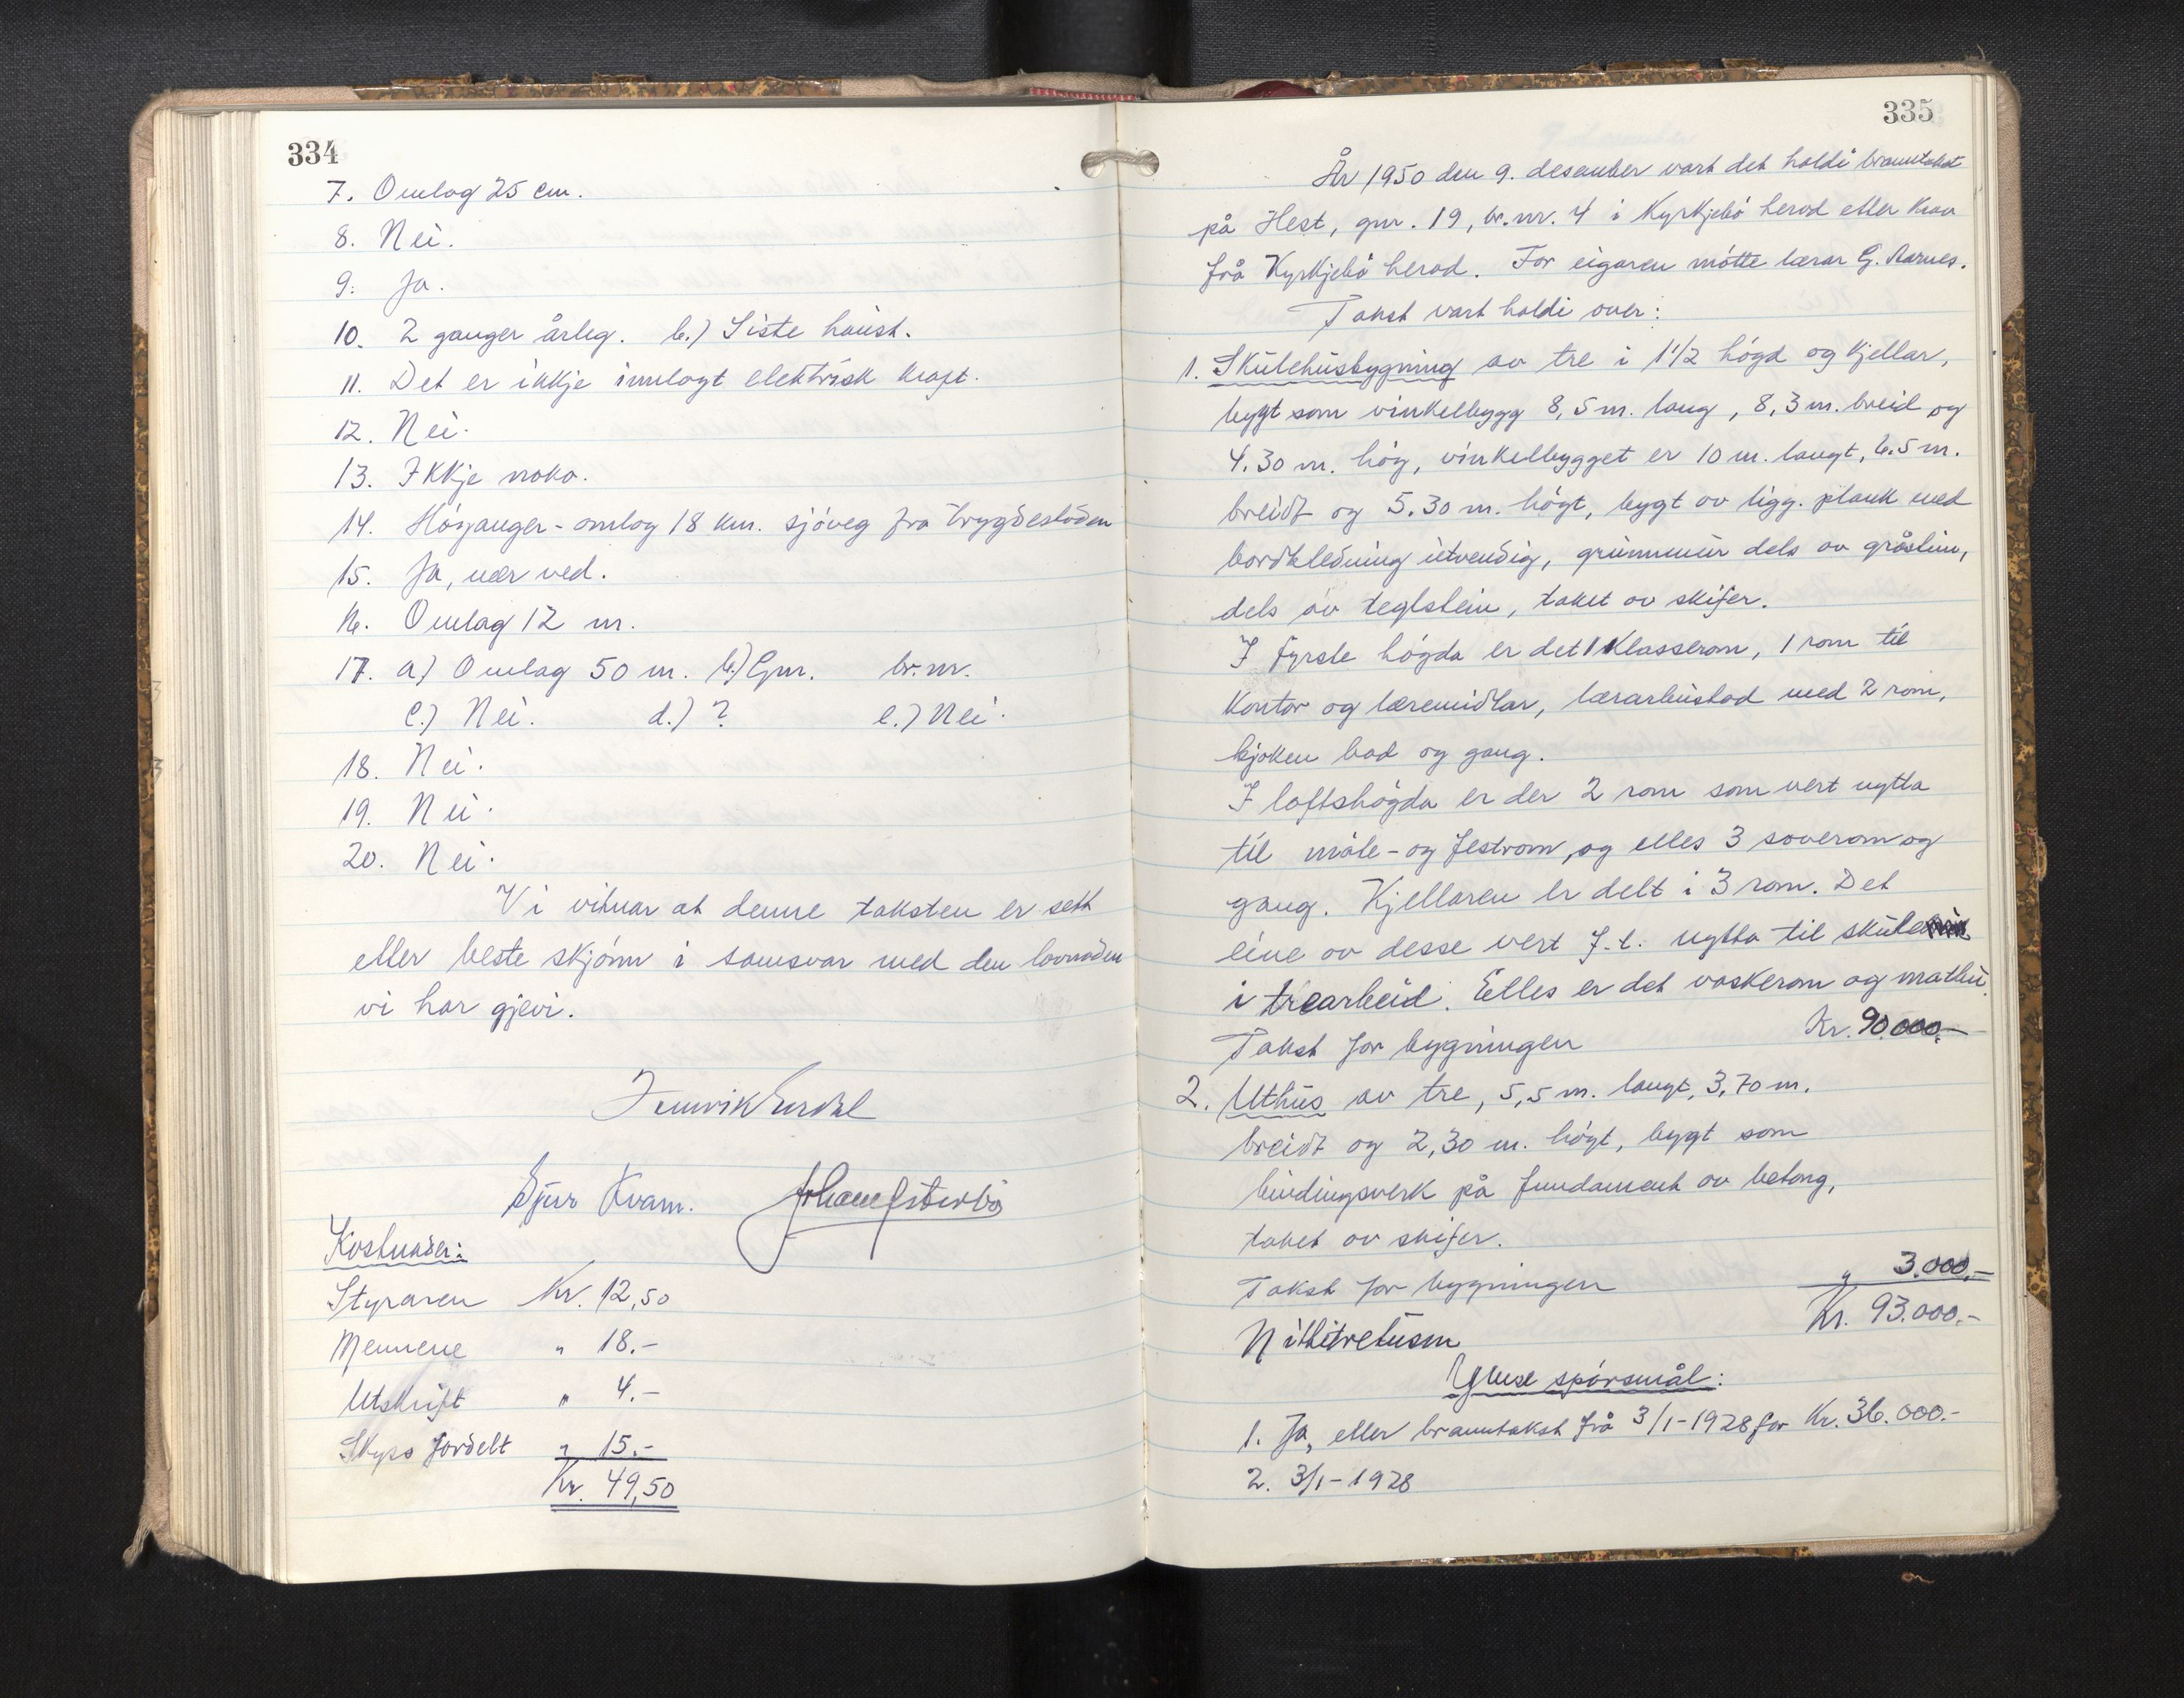 334
7. Omlag 25 cm.
8. Nei.
9. Ja.
10. 2 ganger årleg. b.) Siste haust.
11. Det er ikkje innlagt elektrisk kraft.
12. Nei.
13. Ikkje noko.
14. Høyanger - omlag 18 km. sjöveg fra brygdestöden
15. Ja, nær ved.
16. Omlag 12 m.
17. a) Omlag 50 m. b.) Gnr. br.nr.
c.) Nei. d.) ? e.) Nei.
18. Nei.
19. Nei.
20. Nei.
Vi vitnar at denne taksten er sett
etter beste skjönn i samsvar med den lovnaden
vi har gjevi.
Sjur Kvam.
Kostnader:
Styraren Kr. 12,50
Mennene " 18.-
Utskrift " 4.-
Skyss fordelt " 15.-
Kr. 49,50
335
År 1950 den 9. desember vart det haldi branntakst
på Hest, gnr. 19, br.nr. 4 i Kyrkjebö herad etter krav
frå Kyrkjebö herad. For eigaren mötte lærar G. Aarnes.
Takst vart haldi over:
1. Skulehusbygning av tre i 1 1/2 högd og kjellar,
bygt som vinkelbygg 8,5 m. lang, 8,3 m. breid og
4.30 m. höy, vinkelbygget er 10 m. langt, 6.5 m.
breidt og 5.30 m. högt, bygt av ligg. plank med
bordkledning utvendig, grunnmur dels av gråstein,
dels av teglstein, taket av skifer.
I fyrste högda er det 1 klasserom, 1 rom til
kontor og læremidlar, lærarbustad med 2 rom,
kjöken bad og gang.
I loftshögda er der 2 rom som vert nytta
til möte- og festrom, og elles 3 soverom og
gang. Kjellaren er delt i 3 rom. Det
eine av desse vert f.t. nytta til skule
i trearbeid. Elles er det vaskerom og matbu.
Takst for bygningen Kr. 90.000.-
2. Uthus av tre, 5,5 m. langt, 3,70 m.
breidt og 2,30 m. högt, bygt som
bindingsverk på fundament av betong,
taket av skifer.
Takst for bygningen " 3.000.-
Nittitretusen Kr. 93.000.-
Ymse spörsmål:
1. Ja, etter branntakst frå 3/1-1928 for Kr. 36.000.-
2. 3/1-1928